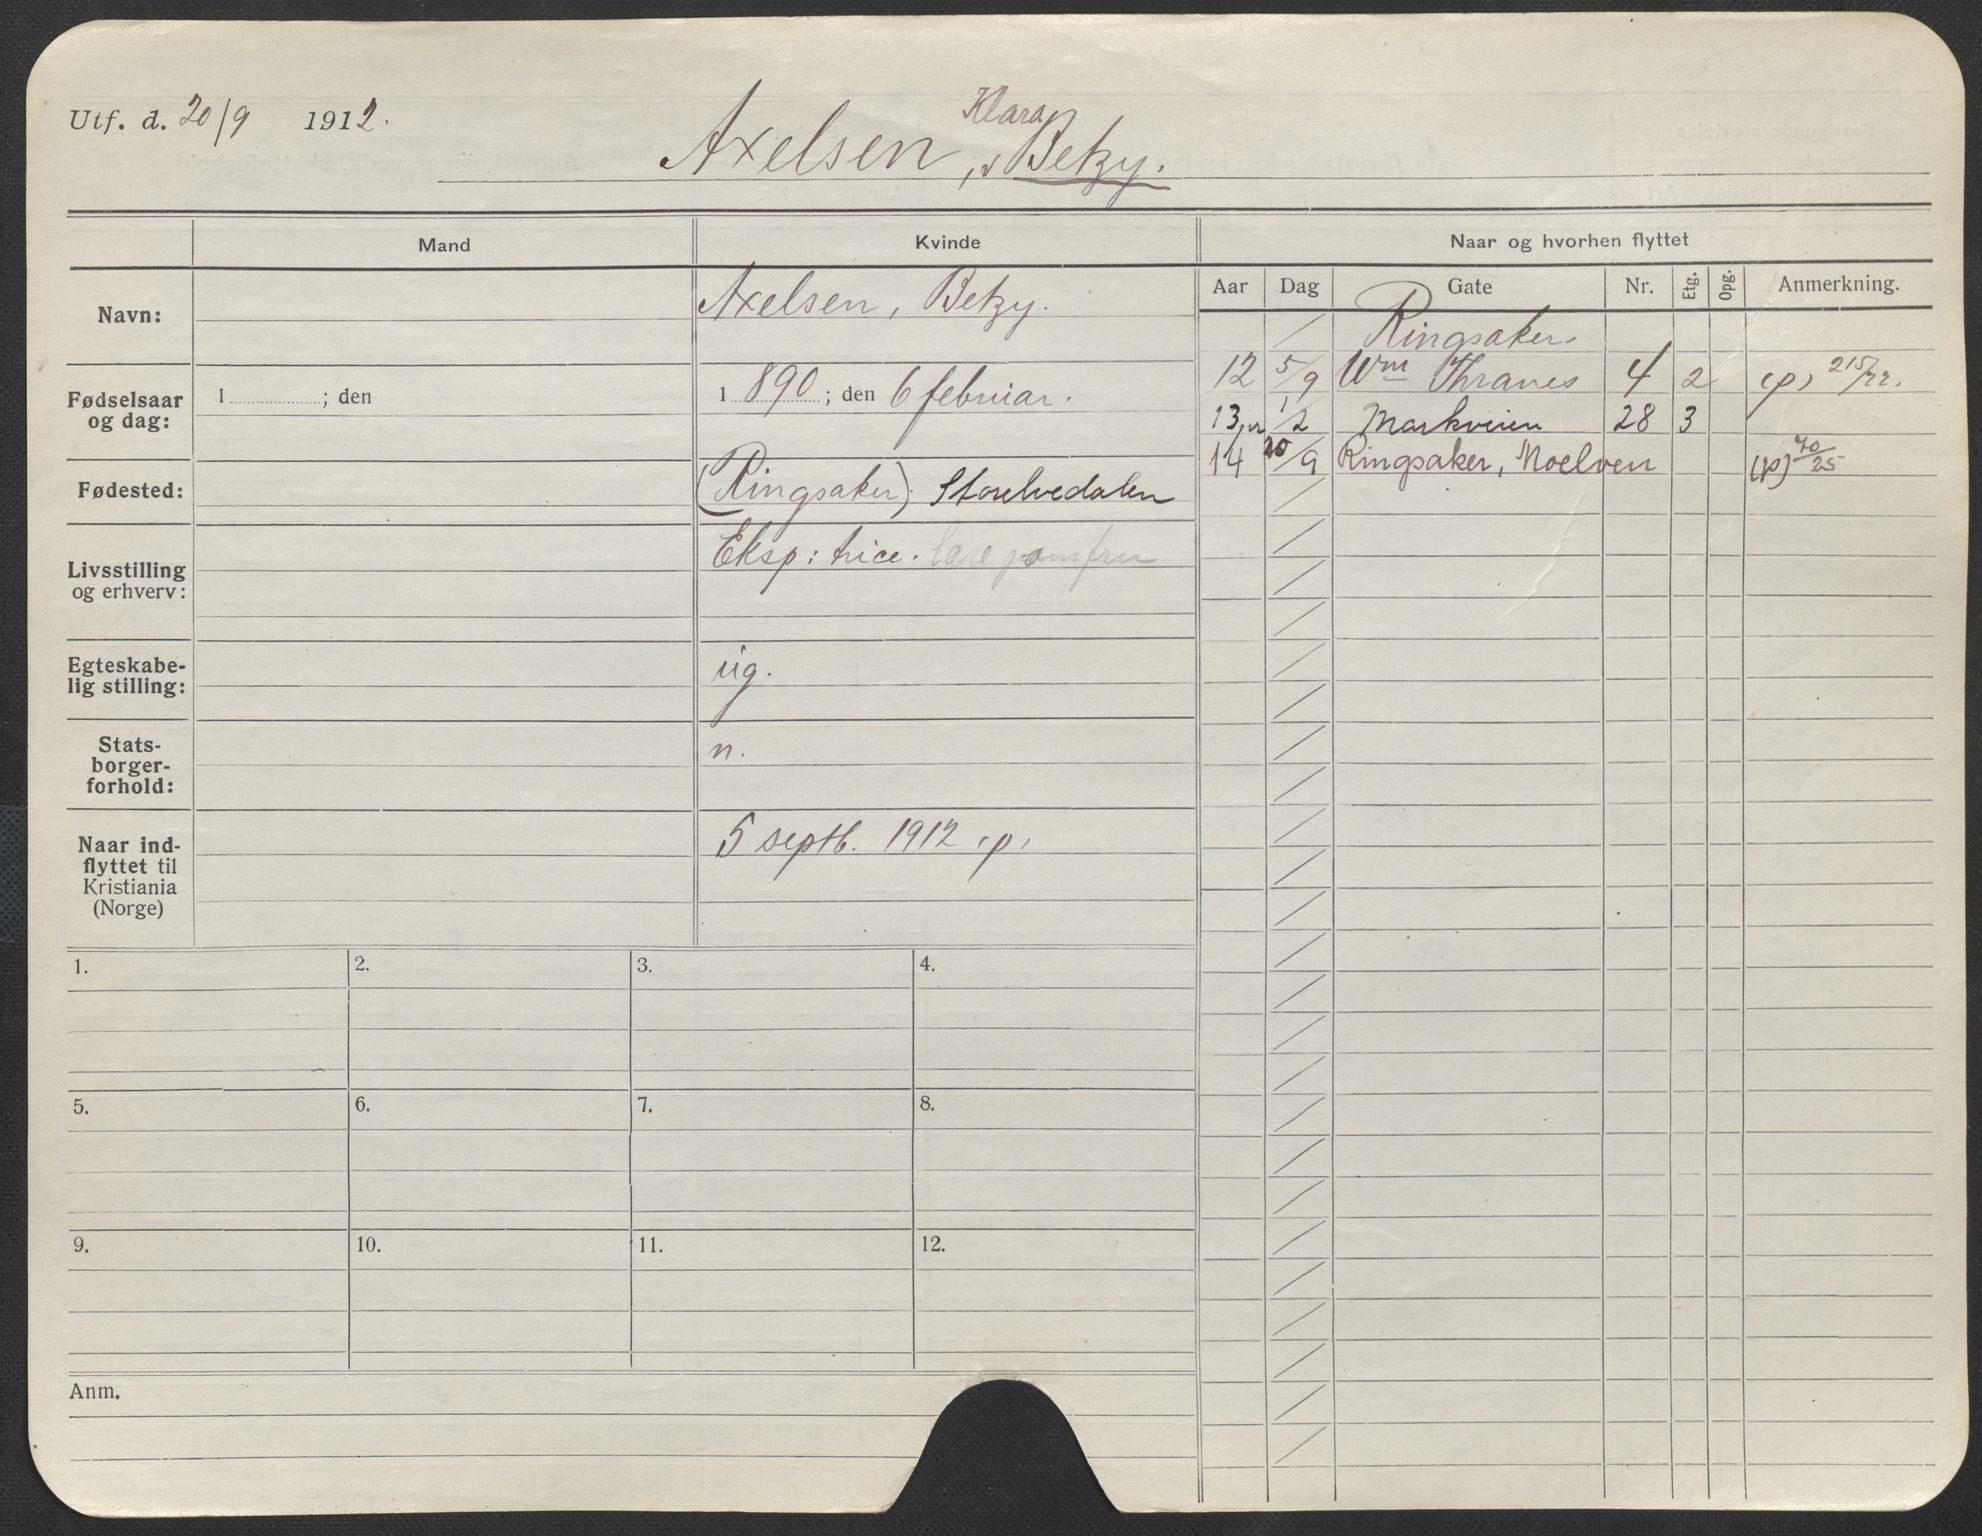 Utf. d. 20/9 1912.
Klara
Axelsen, Betzy.
Mand
Kvinde
Naar og hvorhen flyttet
Aar Dag Gate Nr. Etg. Opg. Anmerkning.
Navn:
Axelsen, Betzy.
Fødselsaar
og dag:
1 ; den
1 890 ; den 6 februar.
Fødested:
(Ringsaker). Storelvedalen
Livsstilling
og erhverv:
Eksp:trice.
Egteskabe-
lig stilling:
ug.
Stats-
borger-
forhold:
n.
Naar ind-
flyttet til
Kristiania
(Norge)
5 septb. 1912 (p)
/ Ringsaker.
12 5/9 Wm Thranes 4 2 (p) 215/22.
13 1/2 Markveien 28 3
14 20/9 Ringsaker, Moelven (p) 70/25
1. 2. 3. 4.
5. 6. 7. 8.
9. 10. 11. 12.
Anm.